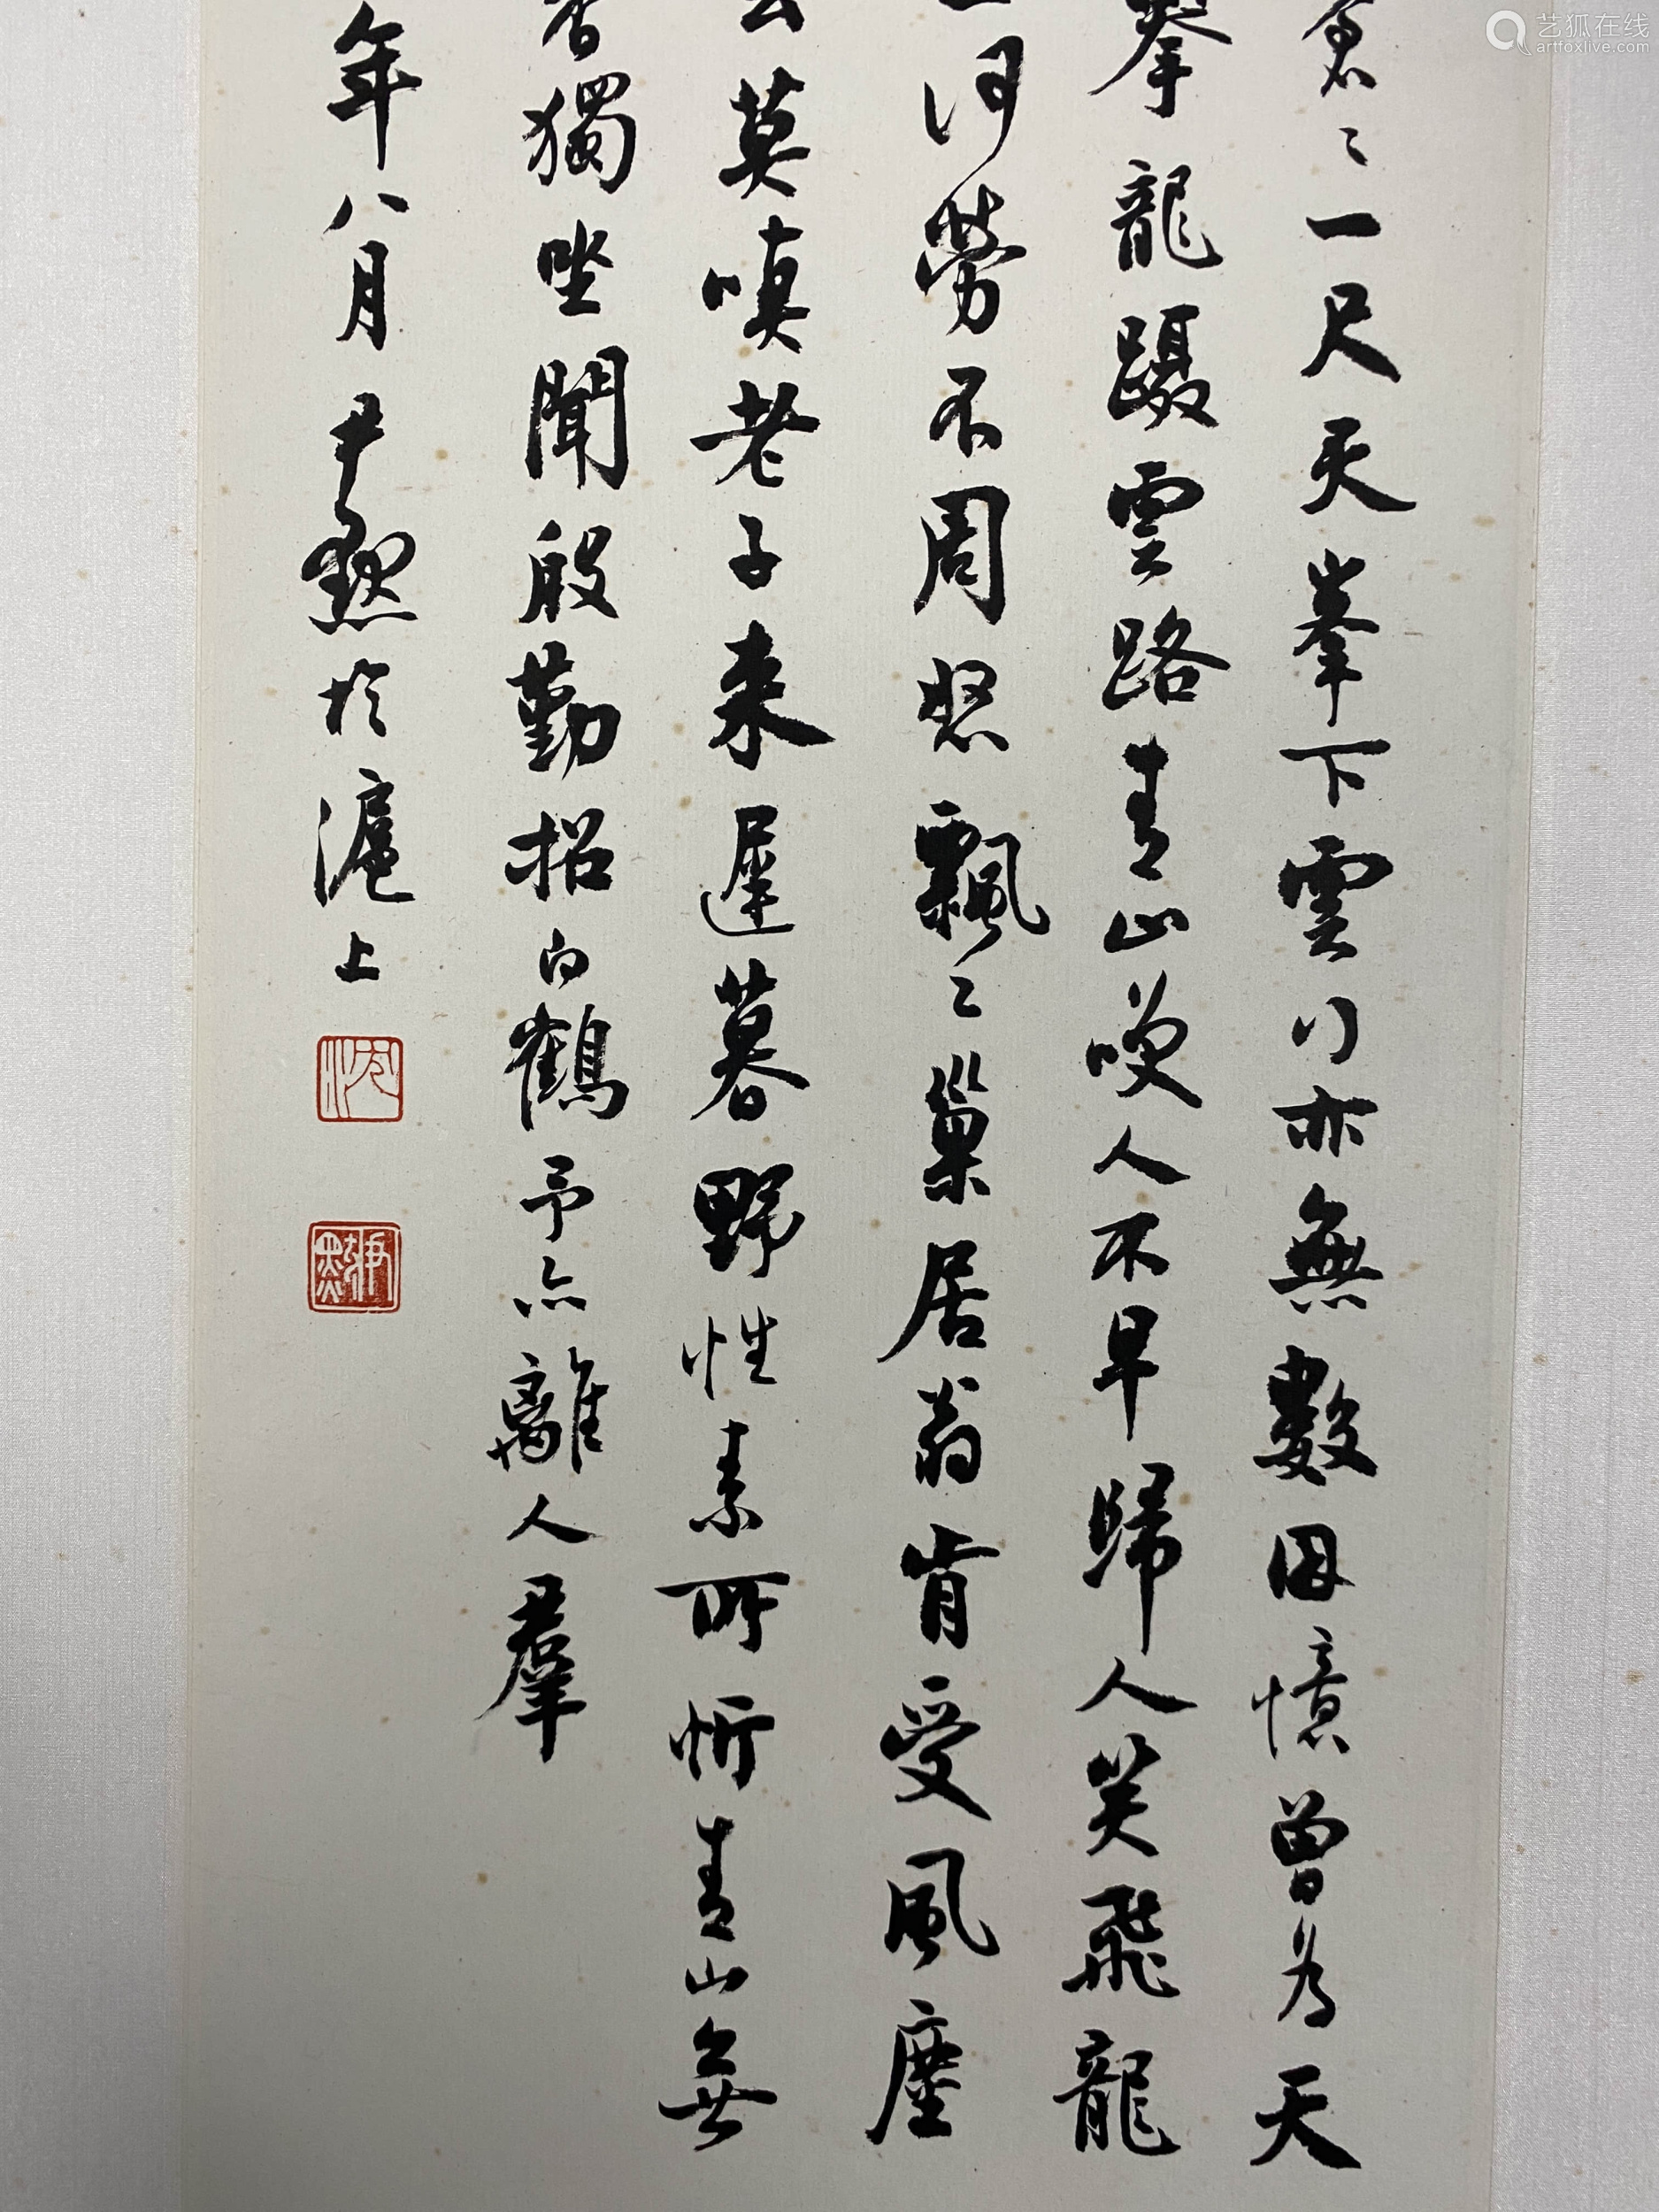 一尺天峯下雲行亦無數因憶曾為天
拏龍躡雲路青山嘆人不早歸人笑飛龍
何勞不周怒飄〻巢居翁肯受風塵
莫嗔老子來遲暮野性素所忻青山無
獨坐聞殷勤招白鶴予亦離人羣
年八月尹默於滬上
沈
尹默
艺狐在线
artfoxlive.com